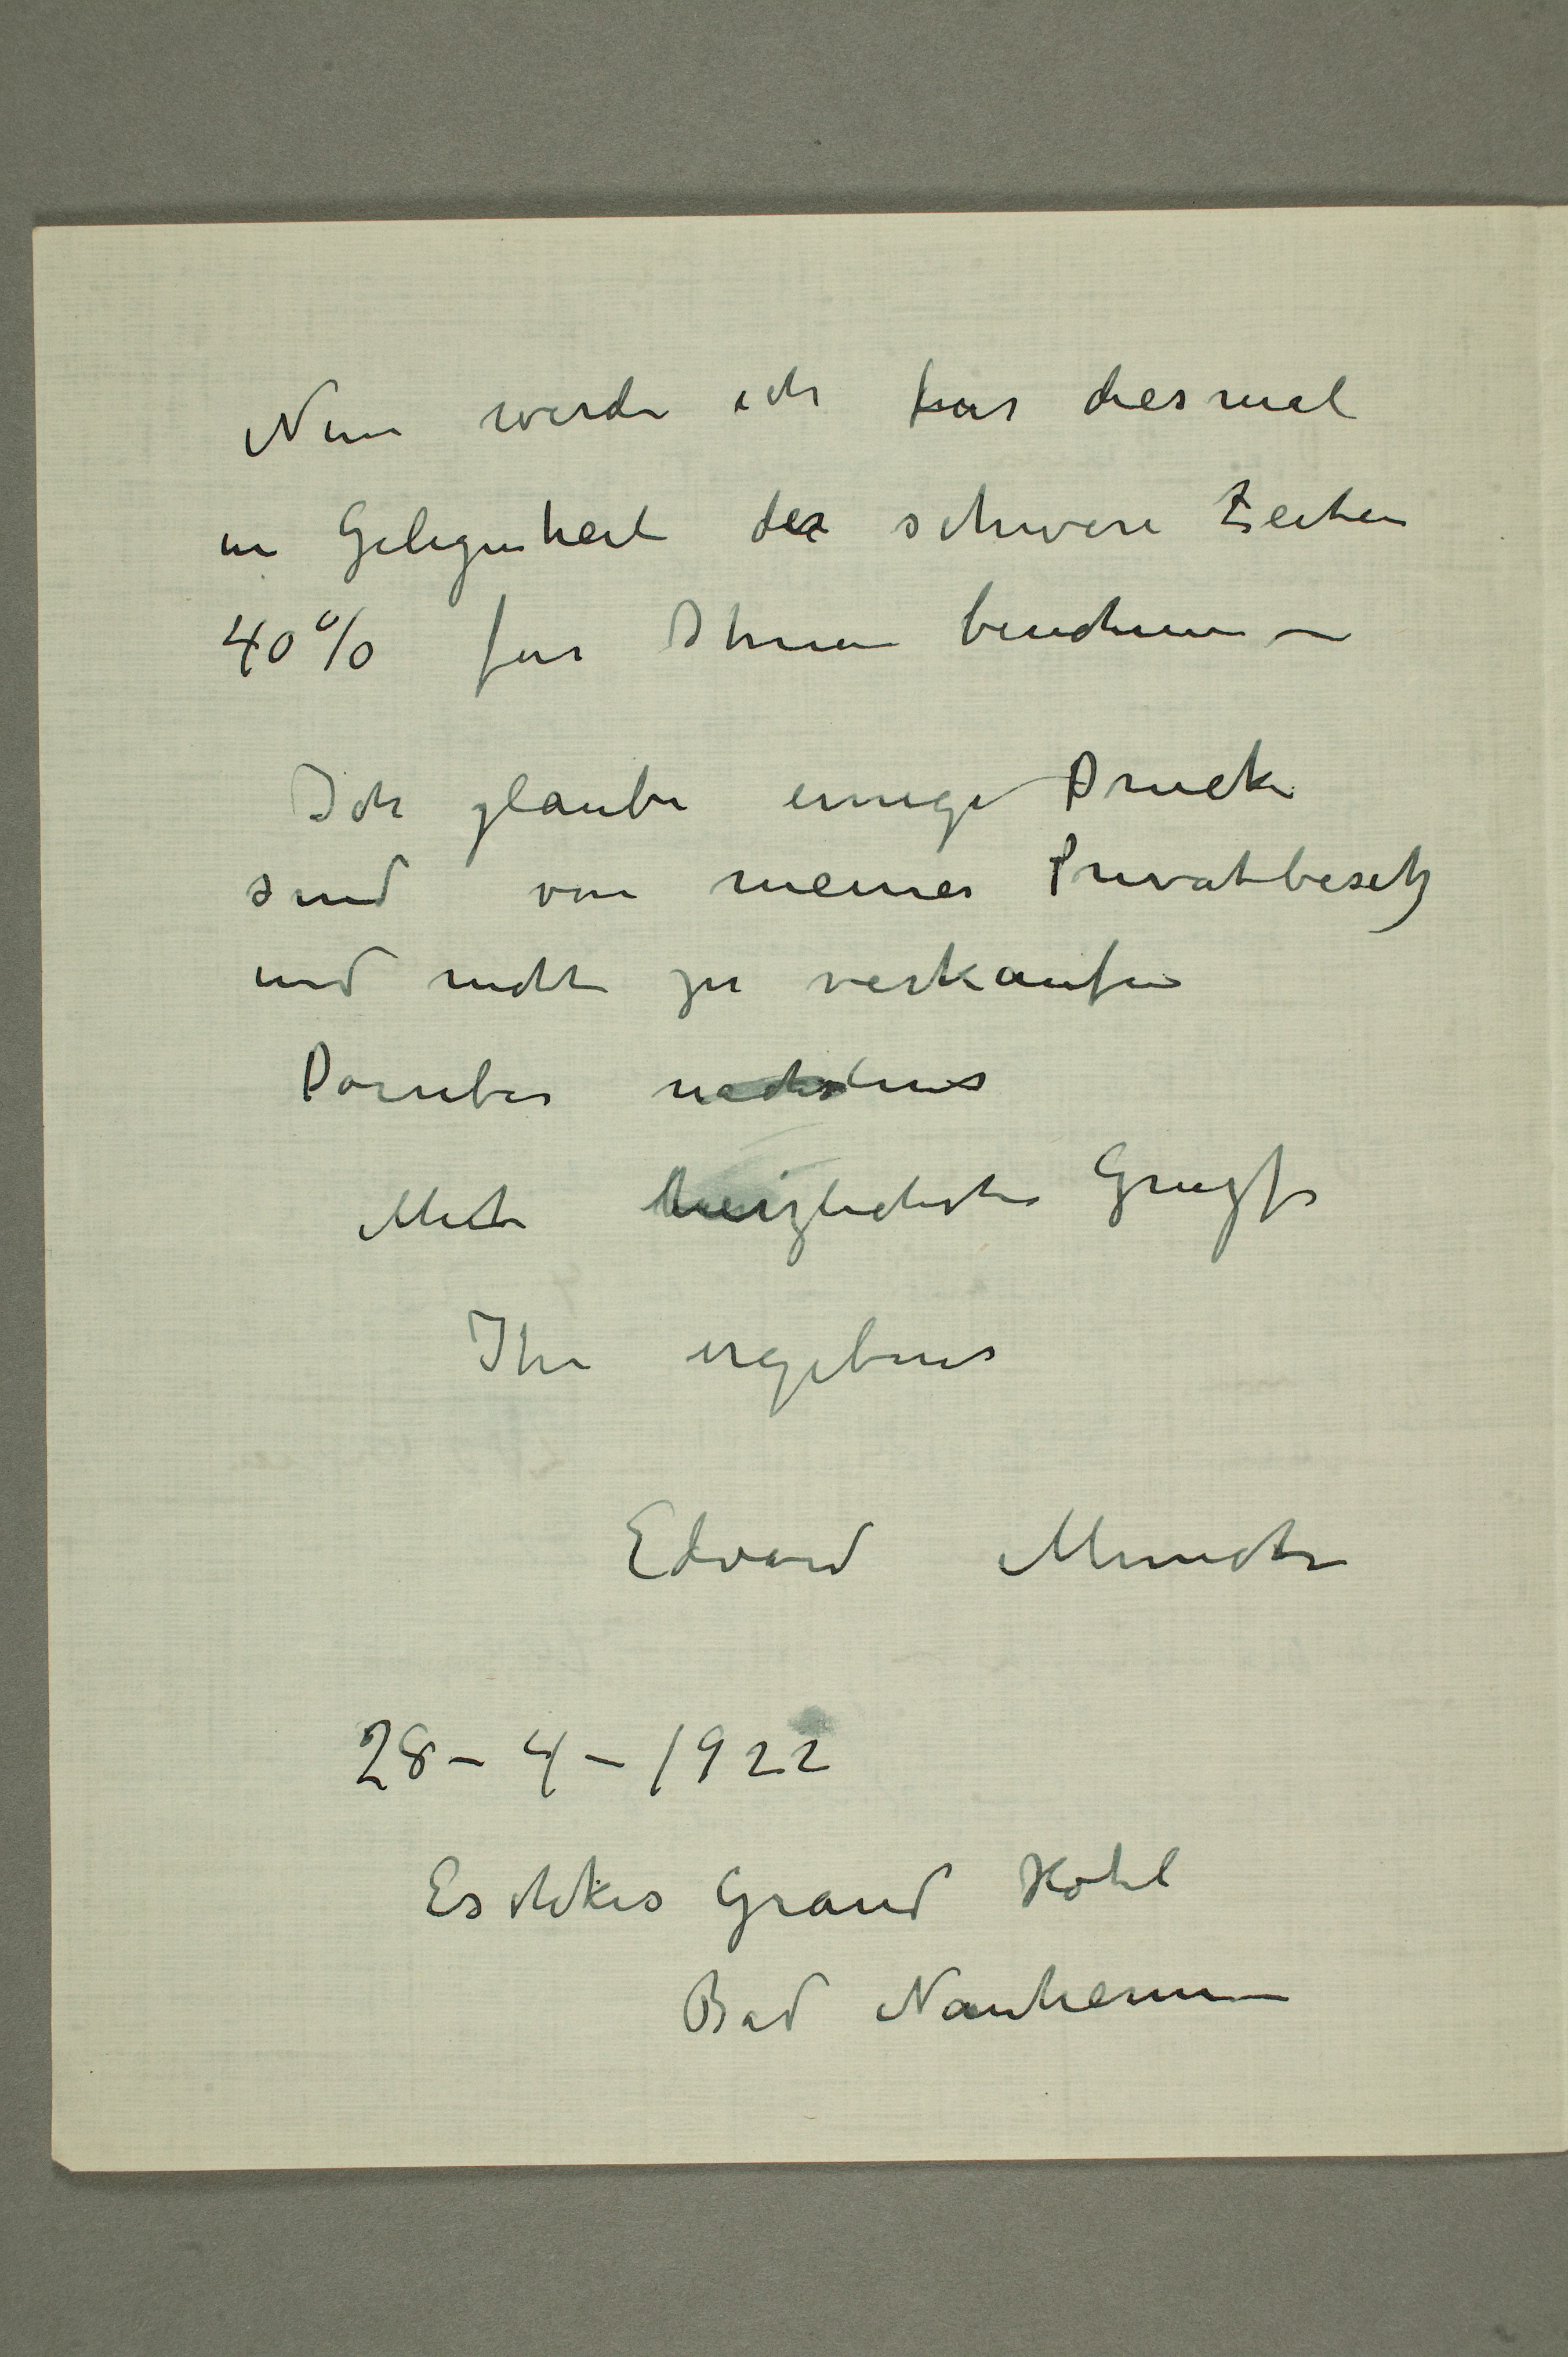 Nun werde ich fur diesmal
in Gelegenheit der schwere Zeiten
40% fur Ihnen berechnen –
Ich glaube einige Drucke
sind von meiner Privatbesitz
und nicht zu verkaufen
Daruber nachstens
Mit herzlichste Grusse
Ihr ergebener
Edvard Munch
28 – 4 – 1922
Eschkes Grand Hotel
Bad Nauheim